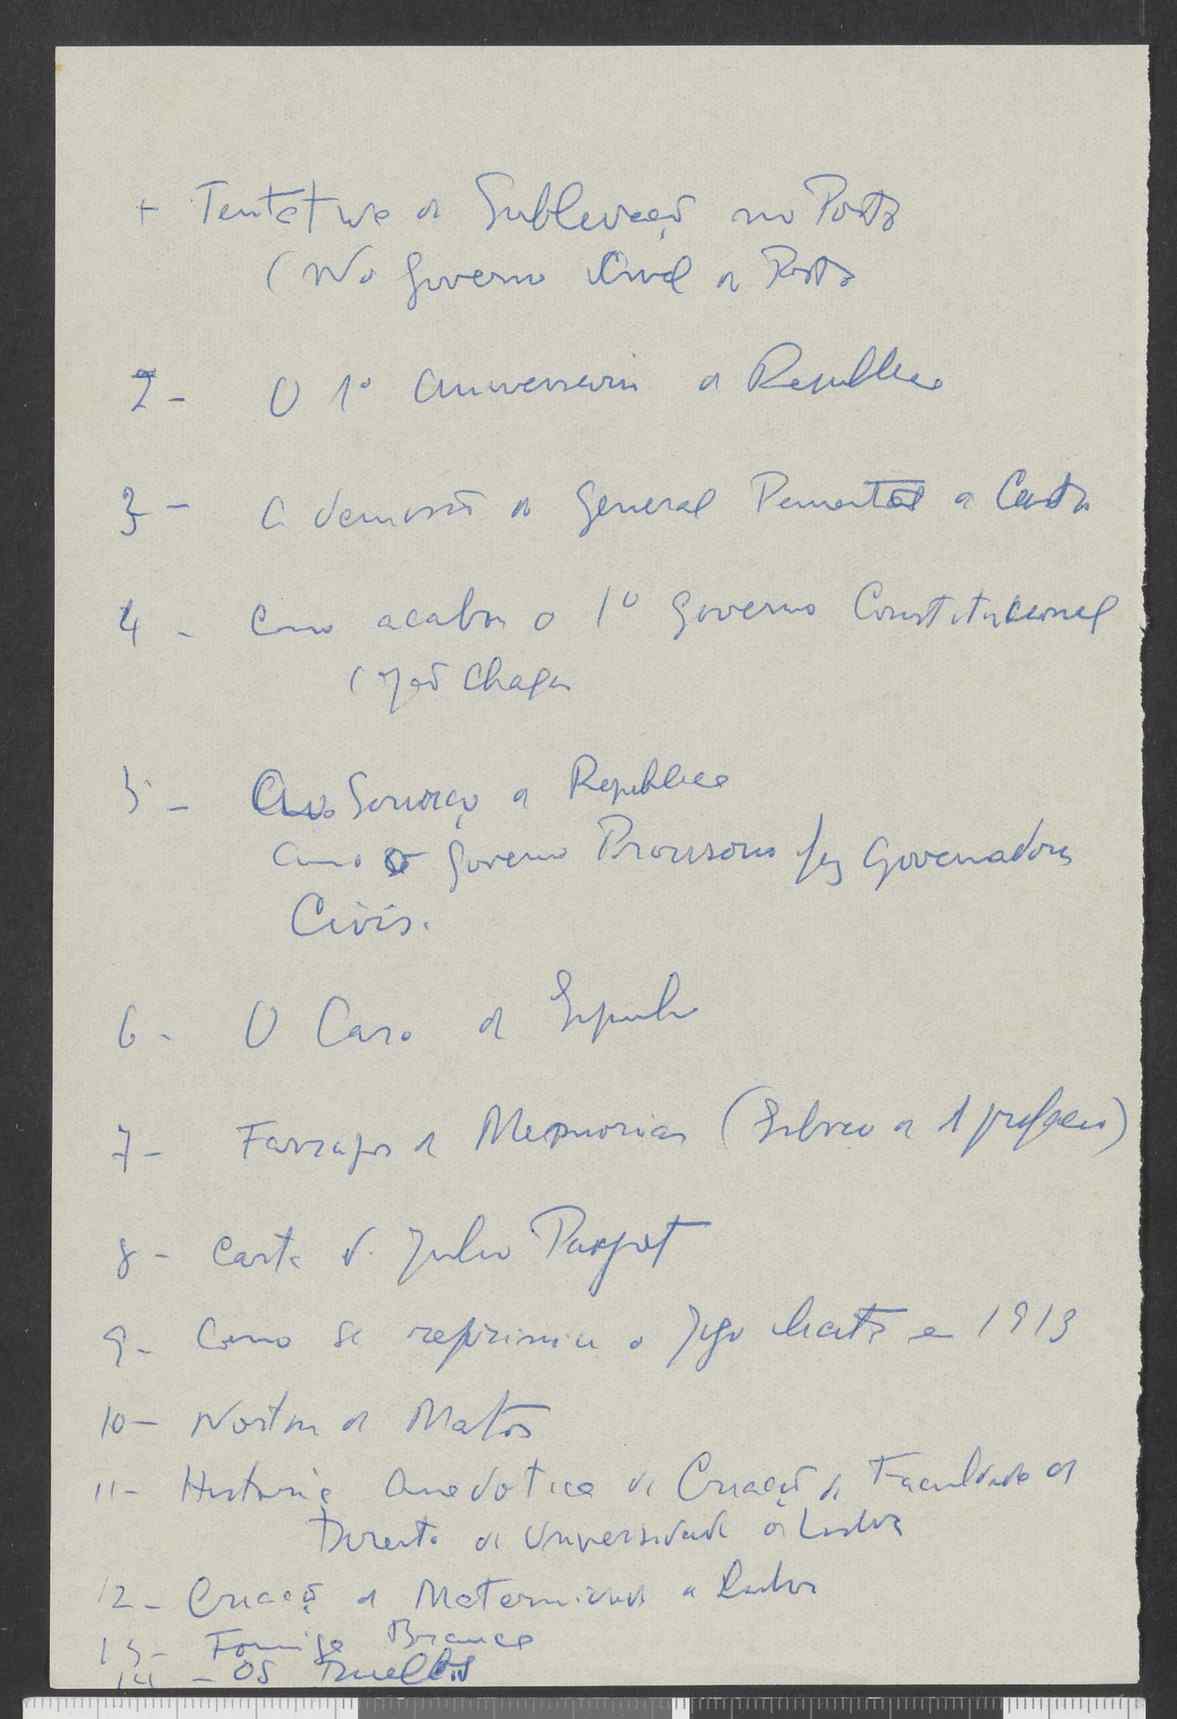 + Tentativa de Sublevação no Porto
(No Governo Civil do Porto
2 - O 1º aniversario da Republica
3 - A demissão do General Pimentel de Castro
4 - Como acabou o 1º Governo Constitucional
(João Chagas
5 - Ao Serviço da Republica
Como o Governo Provisorio fez Governadores
Civis.
6 - O Caso de
7 - Farrapos de Memorias (
8 - Carta de Julio
9 - Como se reprimiu o Jogo Ilicito em 1913
10 - Norton de Matos
11 - Historia Anedotica da Criação da Faculdade de
Direito da Universidade de Lisboa
12 - Criação da Maternidade de Lisboa
13 - Formiga Branca
14 - Os Duellos